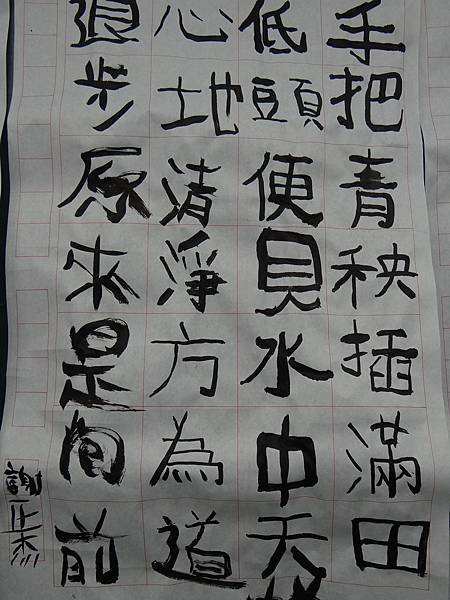 手把青秧插滿田
低頭便貝水中天
心地清淨方為道
退步原來是向前
謝正杰